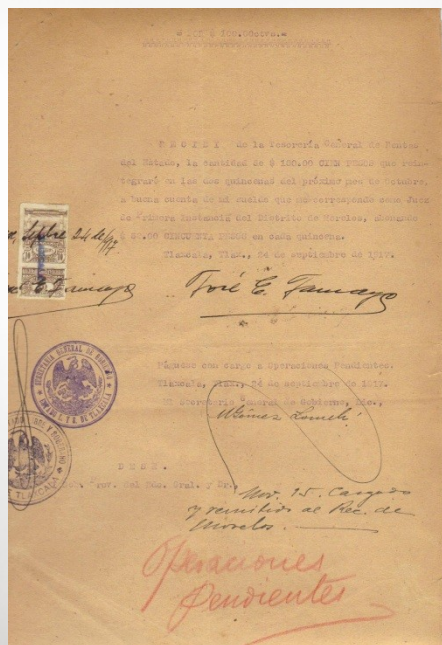 = POR $ 100.00ctvs.=
RECIBI de la Tesorería General de Rentas
del Estado, la cantidad de $ 100.00 CIEN PESOS que rein-
tegraré en las dos quincenas del próximo mes de Octubre,
a buena cuenta de mi sueldo que me corresponde como Juez
de Primera Instancia del Distrito de Morelos, abonando
$ 50.00 CINCUENTA PESOS en cada quincena.
Tlaxcala, Tlax., 24 de septiembre de 1917.
Septbre 24 de 1917
José E. Tamayo
E. Tamayo
Páguese con cargo a Operaciones Pendientes.
Tlaxcala, Tlax., 24 de septiembre de 1917.
El Secretario General de Gobierno, Lic.,
SECRETARIA GENERAL DE
DE TLAXCALA
DESE.
Gral. y
Nov. 15. Cargado
y remitido al Rec. de
Morelos.
Operaciones
Pendientes